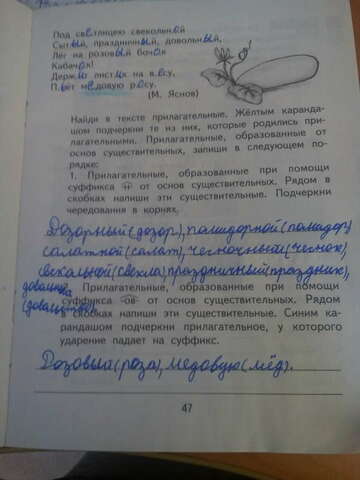 Под светлицею свекольной
Сытый, праздничный, довольный,
Лёг на розовый бочок
Кабачок!
Держа листик на весу,
Пьёт медовую росу.
(М. Яснов)
Найди в тексте прилагательные. Жёлтым каранда-
шом подчеркни те из них, которые родились при-
лагательными. Прилагательные, образованные от
основ существительных, запиши в следующем по-
рядке:
1. Прилагательные, образованные при помощи
суффикса -н- от основ существительных. Рядом в
скобках напиши эти существительные. Подчеркни
чередования в корнях.
Дозорный (дозор), помидорной (помидор)
салатной (салат), чесночный (чеснок),
свекольной (свекла), праздничный (праздник),
Прилагательные, образованные при помощи
суффикса -ов- от основ существительных. Рядом
в скобках напиши эти существительные. Синим ка-
рандашом подчеркни прилагательное, у которого
ударение падает на суффикс.
(роза), медовую (мёд).
47